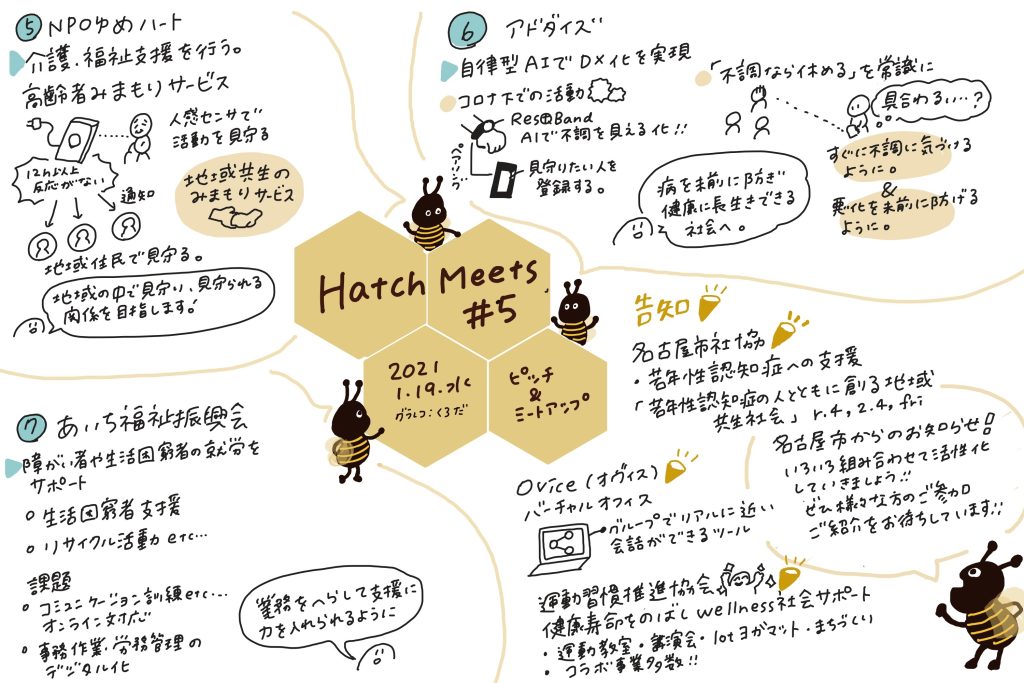 ⑤ NPOゆめハート
介護・福祉支援を行う。
高齢者みまもりサービス
人感センサで
活動を見守る
12h以上
反応がない
通知
地域共生の
みまもりサービス
地域住民で見守る。
地域の中で見守り、見守られる
関係を目指します!
⑥ アドダイズ
自律型AIでDX化を実現
コロナ下での活動
ResQBand
AIで不調を見える化!!
見守りたい人を
登録する。
病を未前に防ぎ
健康に長生きできる
社会へ。
「不調なら休める」を常識に
具合わるい…?
すぐに不調に気づける
ように。
&
悪化を未前に防げる
ように。
Hatch Meets
#5
2021
1.19.火
グラレコ:くろだ
ピッチ
&
ミートアップ
告知
名古屋市社協
・若年性認知症への支援
「若年性認知症の人とともに創る地域
共生社会」 r.4,2.4,fri
名古屋市からのお知らせ!
いろいろ組み合わせて活性化
していきましょう!!
ぜひ様々な方のご参加
ご紹介をお待ちしています!!
Ovice(オヴィス)
バーチャルオフィス
グループでリアルに近い
会話ができるツール
運動習慣推進協会
健康寿命をのばしwellness社会サポート
・運動教室・講演会・Iotヨガマット・まちづくり
・コラボ事業多数!!
⑦ あいち福祉振興会
障がい者や生活困窮者の就労を
サポート
○ 生活困窮者支援
○ リサイクル活動etc…
課題
○ コミュニケーション訓練etc…
オンライン対応
○ 事務作業・労務管理の
デジタル化
業務をへらして支援に
力を入れられるように